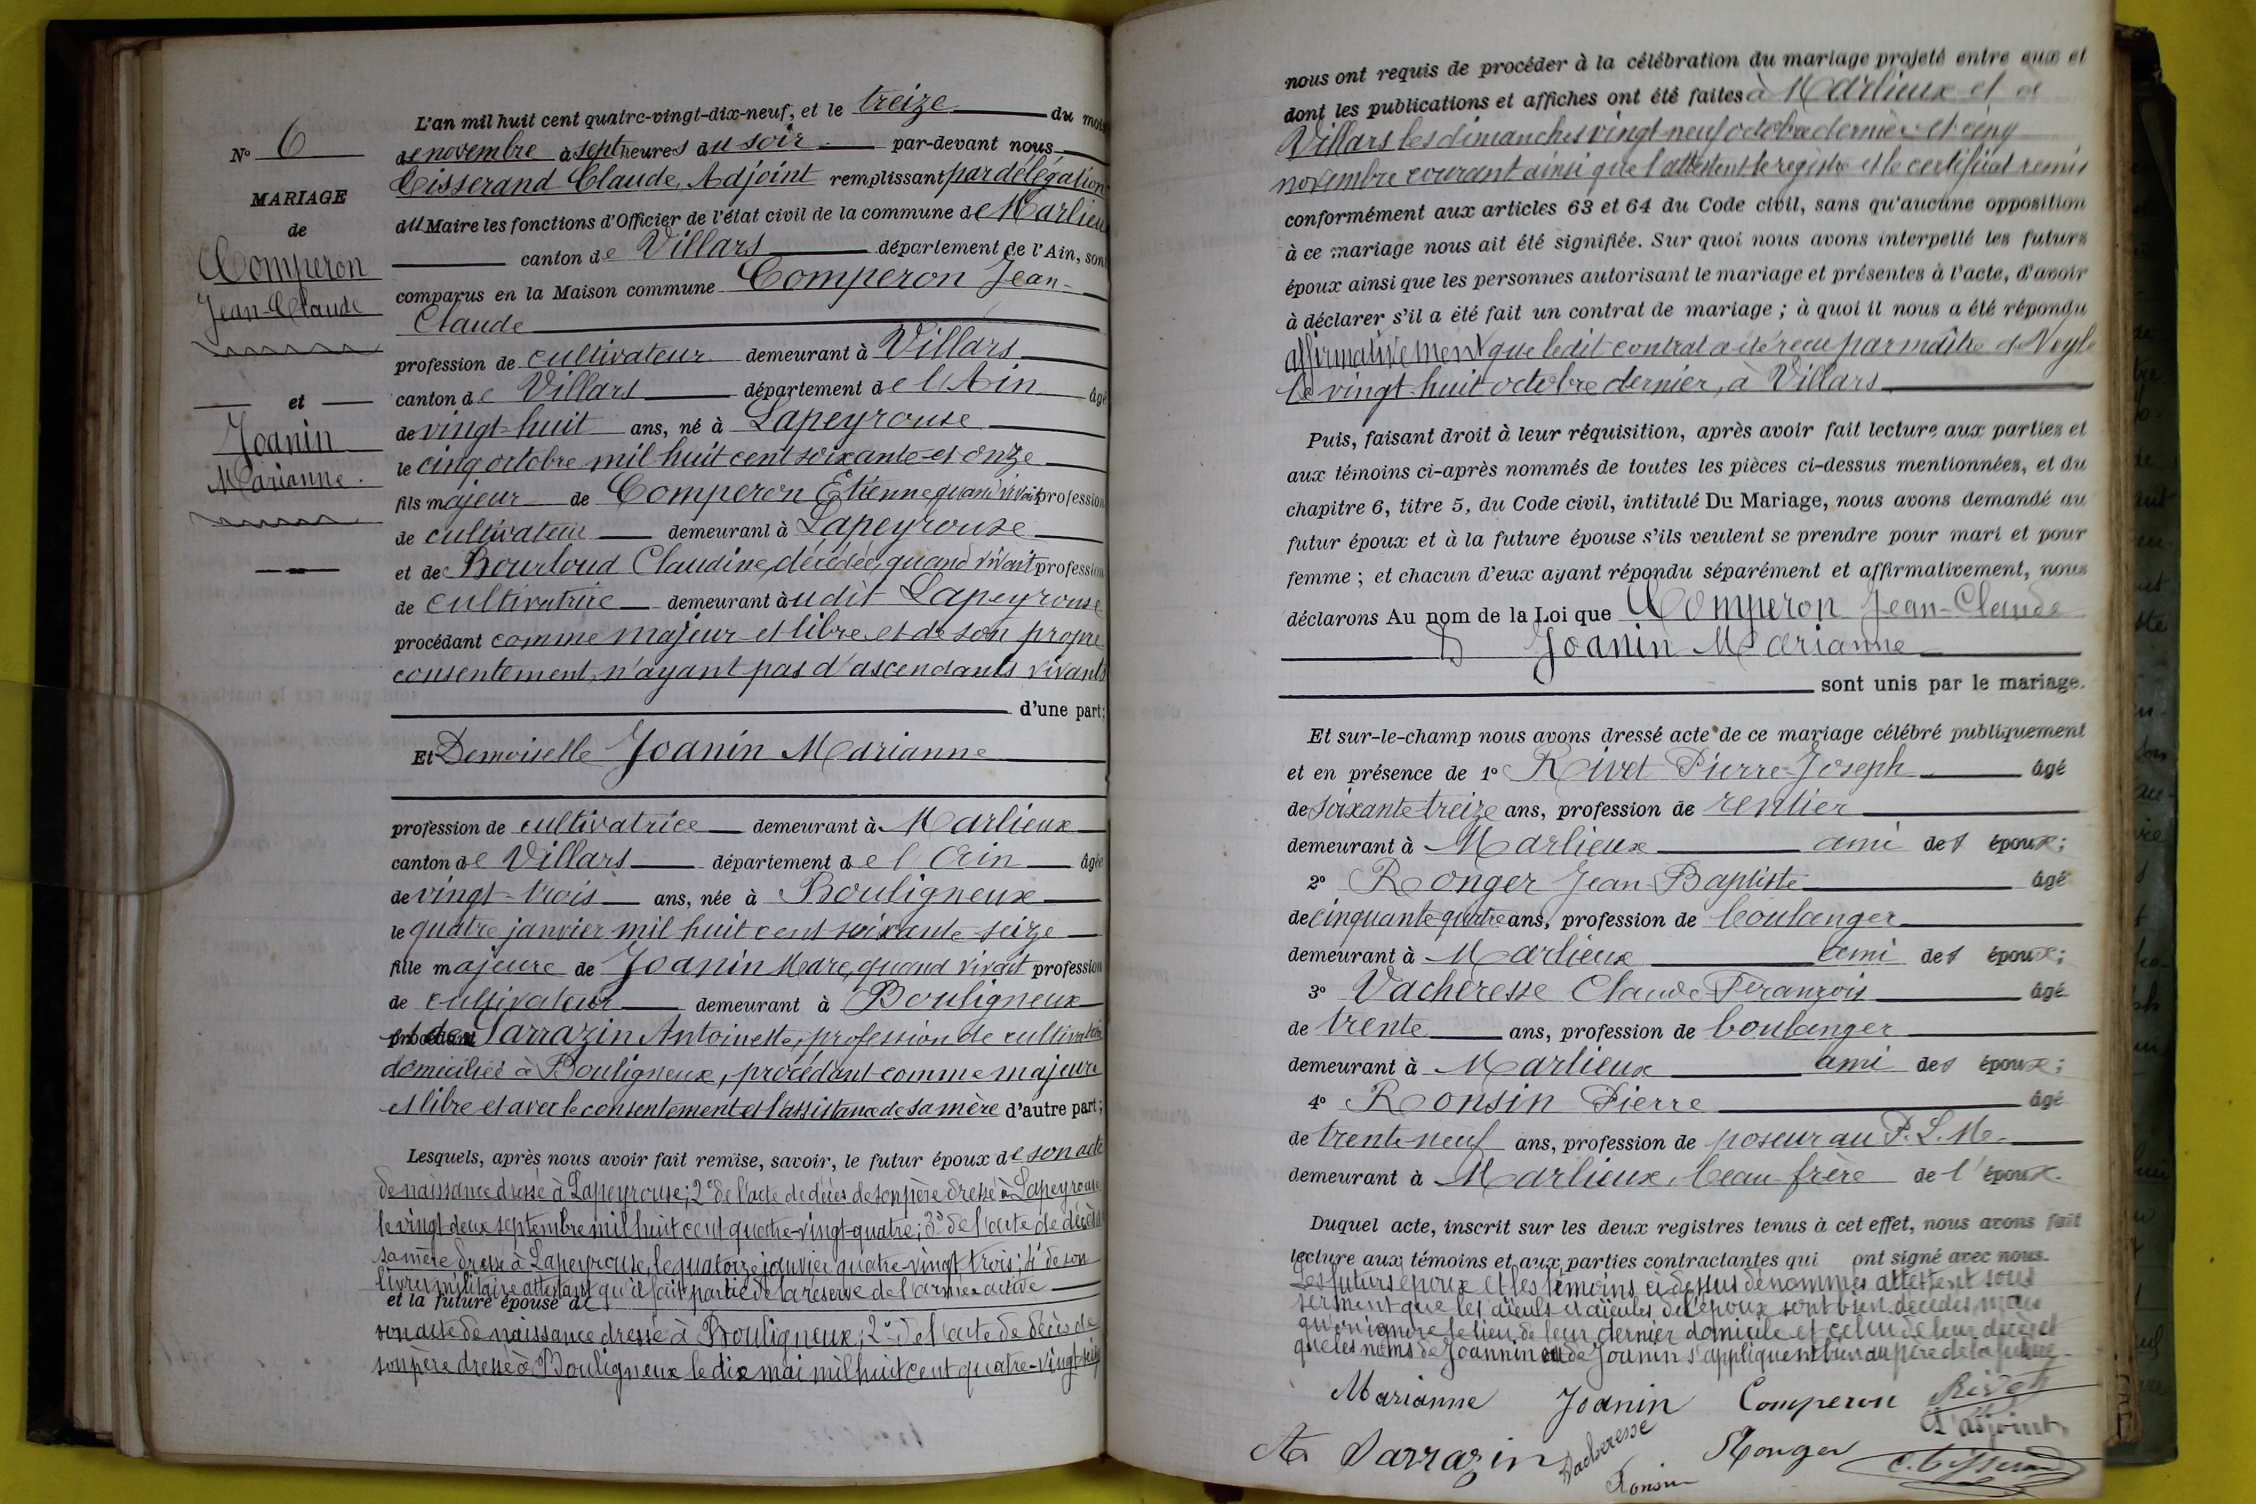 N° 6
MARIAGE
de
Comperon
Jean-Claude
et
Joanin
Marianne.
L'an mil huit cent quatre-vingt-dix-neuf, et le treize du mois
de novembre à sept heures du soir par-devant nous
Tisserand Claude, Adjoint remplissant par délégation
du Maire les fonctions d'Officier de l'état civil de la commune de Marlieux
canton de Villars département de l'Ain, sont
comparus en la Maison commune Comperon Jean-
Claude
profession de cultivateur demeurant à Villars
canton de Villars département de l'Ain âgé
de vingt-huit ans, né à Lapeyrouse
le cinq octobre mil huit cent soixante-et-onze
fils majeur de Comperon Etienne quand vivait profession
de cultivateur demeurant à Lapeyrouse
et de Bourloud Claudine, décédée, quand vivait profession
de cultivatrice demeurant audit Lapeyrouse
procédant comme majeur et libre et de son propre
consentement, n'ayant pas d'ascendants vivants
d'une part;
Et Demoiselle Joanin Marianne
profession de cultivatrice demeurant à Marlieux
canton de Villars département de l'Ain âgée
de vingt-trois ans, née à Bouligneux
le quatre janvier mil huit cent soixante-seize
fille majeure de Joanin Marc, quand vivait profession
de cultivateur demeurant à Bouligneux
et de Sarrazin Antoinette, profession de cultivatrice
domiciliée à Bouligneux, procédant comme majeure
et libre et avec le consentement et l'assistance de sa mère d'autre part;
Lesquels, après nous avoir fait remise, savoir, le futur époux de son acte
de naissance dressé à Lapeyrouse; 2° de l'acte de décès de son père dressé à Lapeyrouse
le vingt-deux septembre mil huit cent quatre-vingt-quatre; 3° de l'acte de décès de
sa mère dressé à Lapeyrouse, le quatorze janvier quatre-vingt trois; 4° de son
livret militaire attestant qu'il fait partie de la réserve de l'armée active
et la future épouse de
son acte de naissance dressé à Bouligneux; 2° de l'acte de décès de
son père dressé à Bouligneux le dix mai mil huit cent quatre-vingt-seize
nous ont requis de procéder à la célébration du mariage projeté entre eux et
dont les publications et affiches ont été faites à Marlieux et à
Villars les dimanches vingt-neuf octobre dernier et cinq
novembre courant ainsi que l'attestent le registre et le certificat remis
conformément aux articles 63 et 64 du Code civil, sans qu'aucune opposition
à ce mariage nous ait été signifiée. Sur quoi nous avons interpellé les futurs
époux ainsi que les personnes autorisant le mariage et présentes à l'acte, d'avoir
à déclarer s'il a été fait un contrat de mariage; à quoi il nous a été répondu
affirmativement que ledit contrat a été reçu par maître de Veyle
le vingt-huit octobre dernier, à Villars
Puis, faisant droit à leur réquisition, après avoir fait lecture aux parties et
aux témoins ci-après nommés de toutes les pièces ci-dessus mentionnées, et du
chapitre 6, titre 5, du Code civil, intitulé Du Mariage, nous avons demandé au
futur époux et à la future épouse s'ils veulent se prendre pour mari et pour
femme; et chacun d'eux ayant répondu séparément et affirmativement, nous
déclarons Au nom de la Loi que Comperon Jean-Claude
& Joanin Marianne
sont unis par le mariage.
Et sur-le-champ nous avons dressé acte de ce mariage célébré publiquement
et en présence de 1° Rivet Pierre-Joseph âgé
de soixante treize ans, profession de rentier
demeurant à Marlieux ami des époux;
2° Ronger Jean-Baptiste âgé
de cinquante-quatre ans, profession de boulanger
demeurant à Marlieux ami des époux;
3° Vacheresse Claude-François âgé
de trente ans, profession de boulanger
demeurant à Marlieux ami des époux;
4° Ronsin Pierre âgé
de trente-neuf ans, profession de poseur au P. L. M.
demeurant à Marlieux, beau-frère de l'époux.
Duquel acte, inscrit sur les deux registres tenus à cet effet, nous avons fait
lecture aux témoins et aux parties contractantes qui ont signé avec nous.
Les futurs époux et les témoins ci-dessus dénommés attestent sous
serment que les aïeuls et aïeules de l'époux sont bien décédés, mais
qu'on ignore le lieu de leur dernier domicile et celui de leur décès et
que les noms de Joannin et de Joanin s'appliquent bien au père de la future
Marianne Joanin Comperon Rivet
L'adjoint
A Sarrazin Vacheresse Ronger C. Tisserand
Ronsin